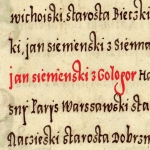 wichoiski, starosta Bieczki
ki, jan siemienski z Sienna
jan siemienski z Gologor Ha
sny Parys Warssawski sta
Naczieski starosta Dobrzn